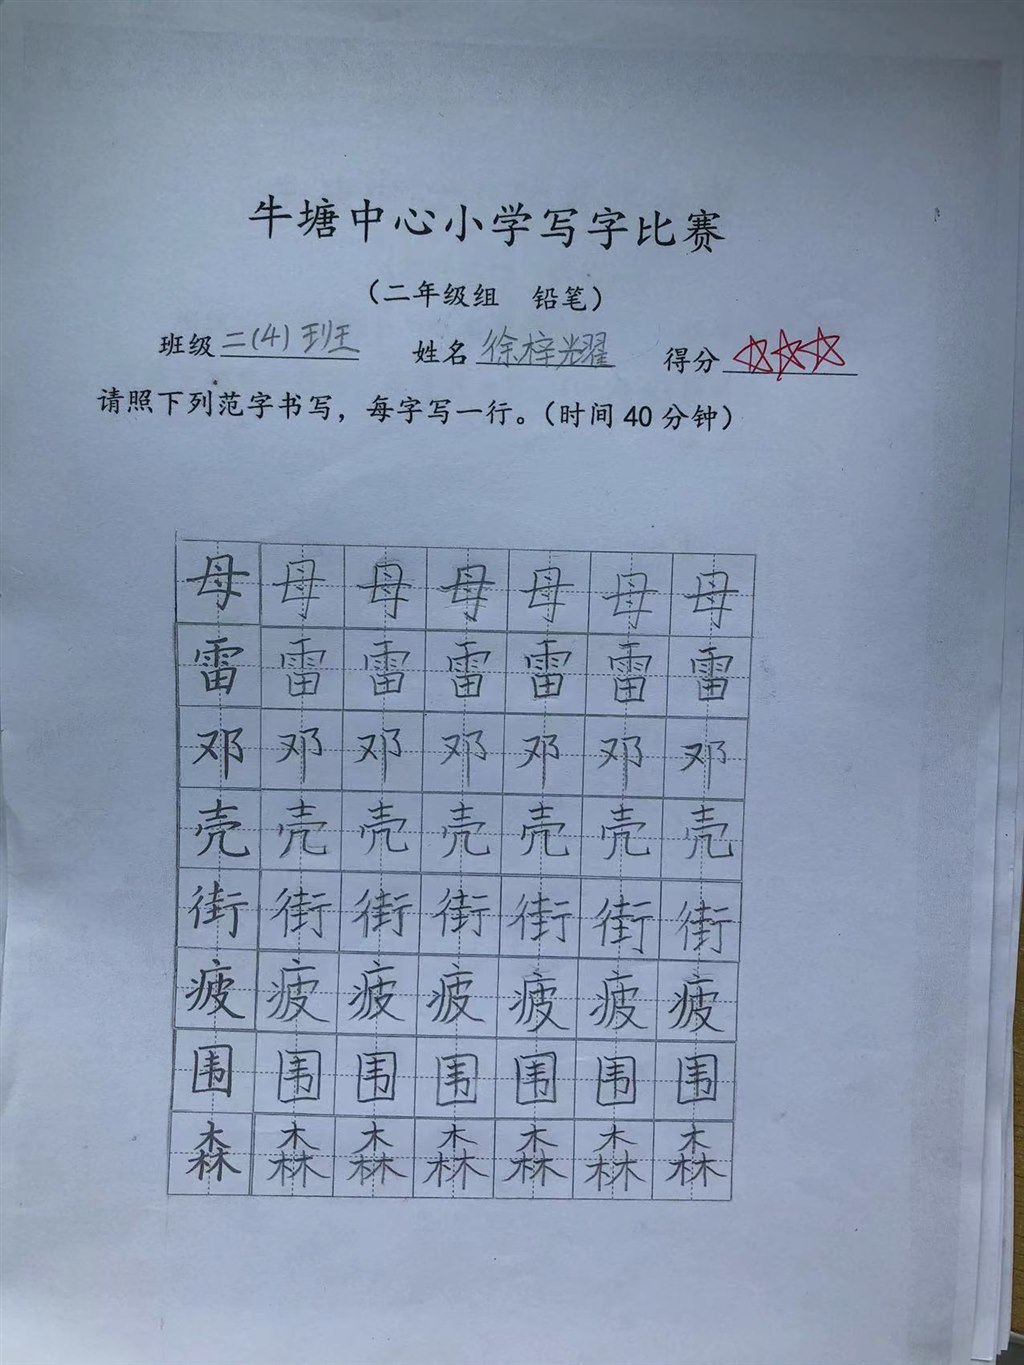 牛塘中心小学写字比赛
（二年级组　铅笔）
班级 二(4)班　姓名 徐梓耀　得分 ☆☆☆
请照下列范字书写，每字写一行。（时间 40 分钟）
母 母 母 母 母 母 母
雷 雷 雷 雷 雷 雷 雷
邓 邓 邓 邓 邓 邓 邓
壳 壳 壳 壳 壳 壳 壳
街 街 街 街 街 街 街
疲 疲 疲 疲 疲 疲 疲
围 围 围 围 围 围 围
森 森 森 森 森 森 森